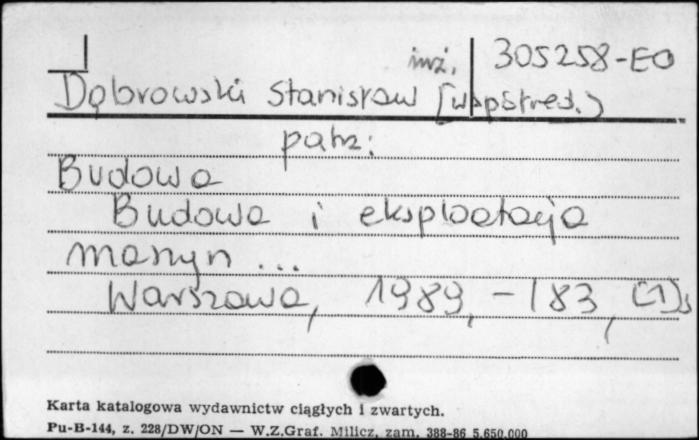 inż. 305258-EO
Dąbrowski Stanisław [współred.)
patrz:
Budowa
Budowa i eksploatacja
maszyn ...
Warszawa, 1989, -183, [1]s
Karta katalogowa wydawnictw ciągłych i zwartych.
Pu-B-144, z. 228/DW/ON — W.Z.Graf. Milicz, zam. 388-86 5.650.000